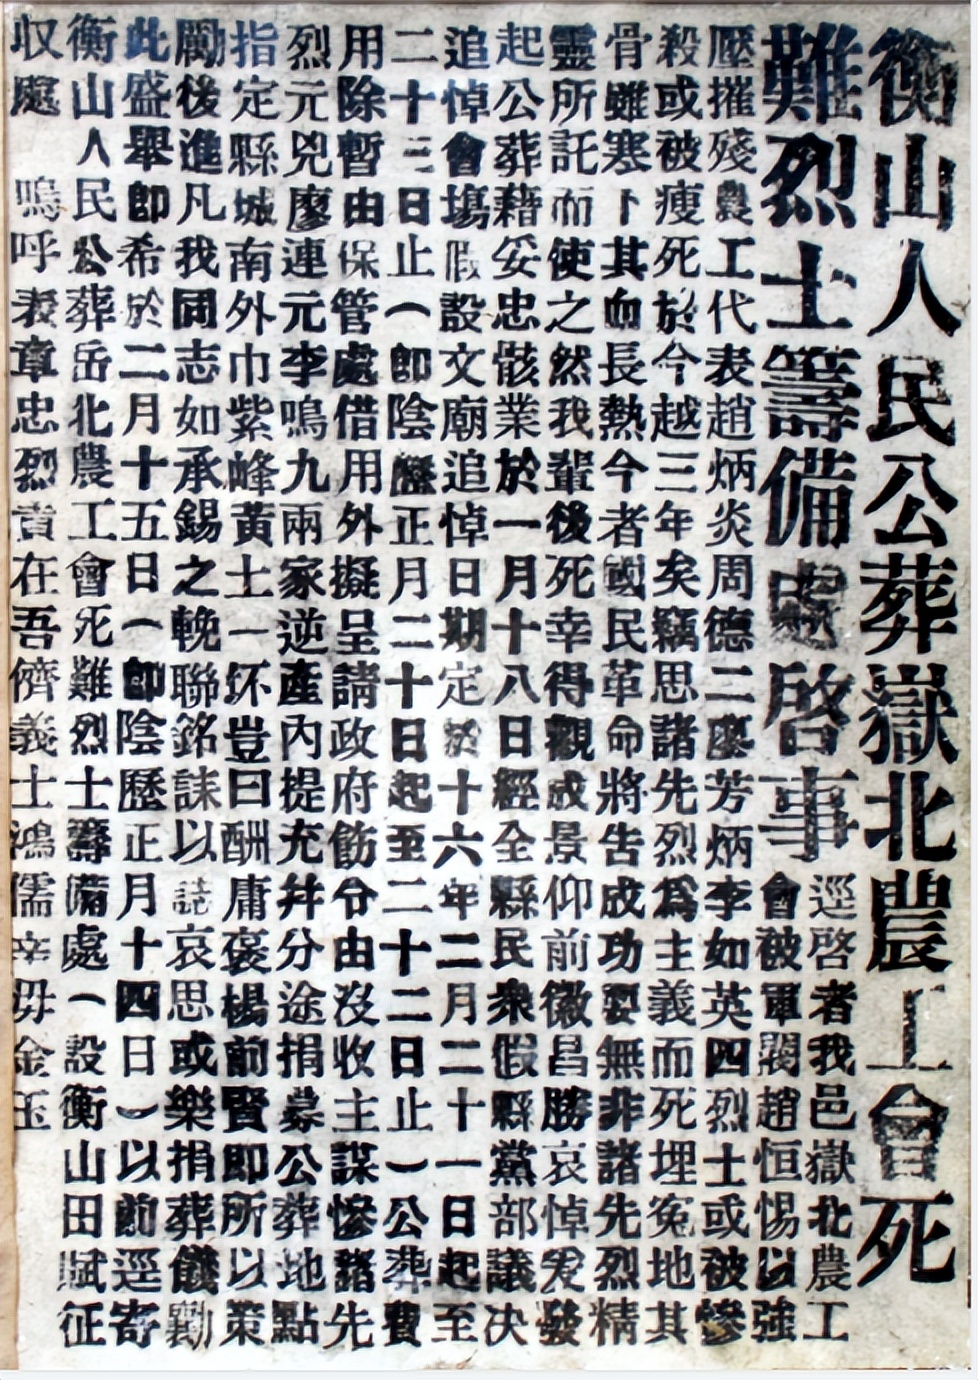 衡山人民公葬嶽北農工會死
難烈士籌備處啓事
逕啓者我邑嶽北農工
會被軍閥趙恒惕以強
壓摧殘農工代表趙炳炎周德二廖芳炳李如英四烈士或被慘
殺或被瘦死於今越三年矣竊思諸先烈爲主義而死埋冤地其
骨雖寒卜其血長熱今者國民革命將告成功要無非諸先烈精
靈所託而使之然我輩後死幸得觀成景仰前徽昌勝哀悼爰發
起公葬藉妥忠骸業於一月十八日經全縣民衆假縣黨部議决
追悼會塲假設文廟追悼日期定於十六年二月二十一日起至
二十三日止（卽陰歷正月二十日起至二十二日止）公葬費
用除暫由保管處借用外擬呈請政府飭分由沒收主謀慘諸先
烈元兇廖連元李鳴九兩家逆產內提充幷分途捐募公葬地點
指定縣城南外巾紫峰黃土一坏豈曰酬庸褒楊前賢即所以策
勵後進凡我同志如承錫之輓聯銘誄以誌哀思或樂捐葬餞勷
此盛舉卽希於二月十五日（卽陰歷正月十四日）以前逕寄
衡山人民公葬岳北農工會死難烈士籌備處（設衡山田賦征
収處 嗚呼表章忠烈責在吾儕義士鴻儒幸毋金玉